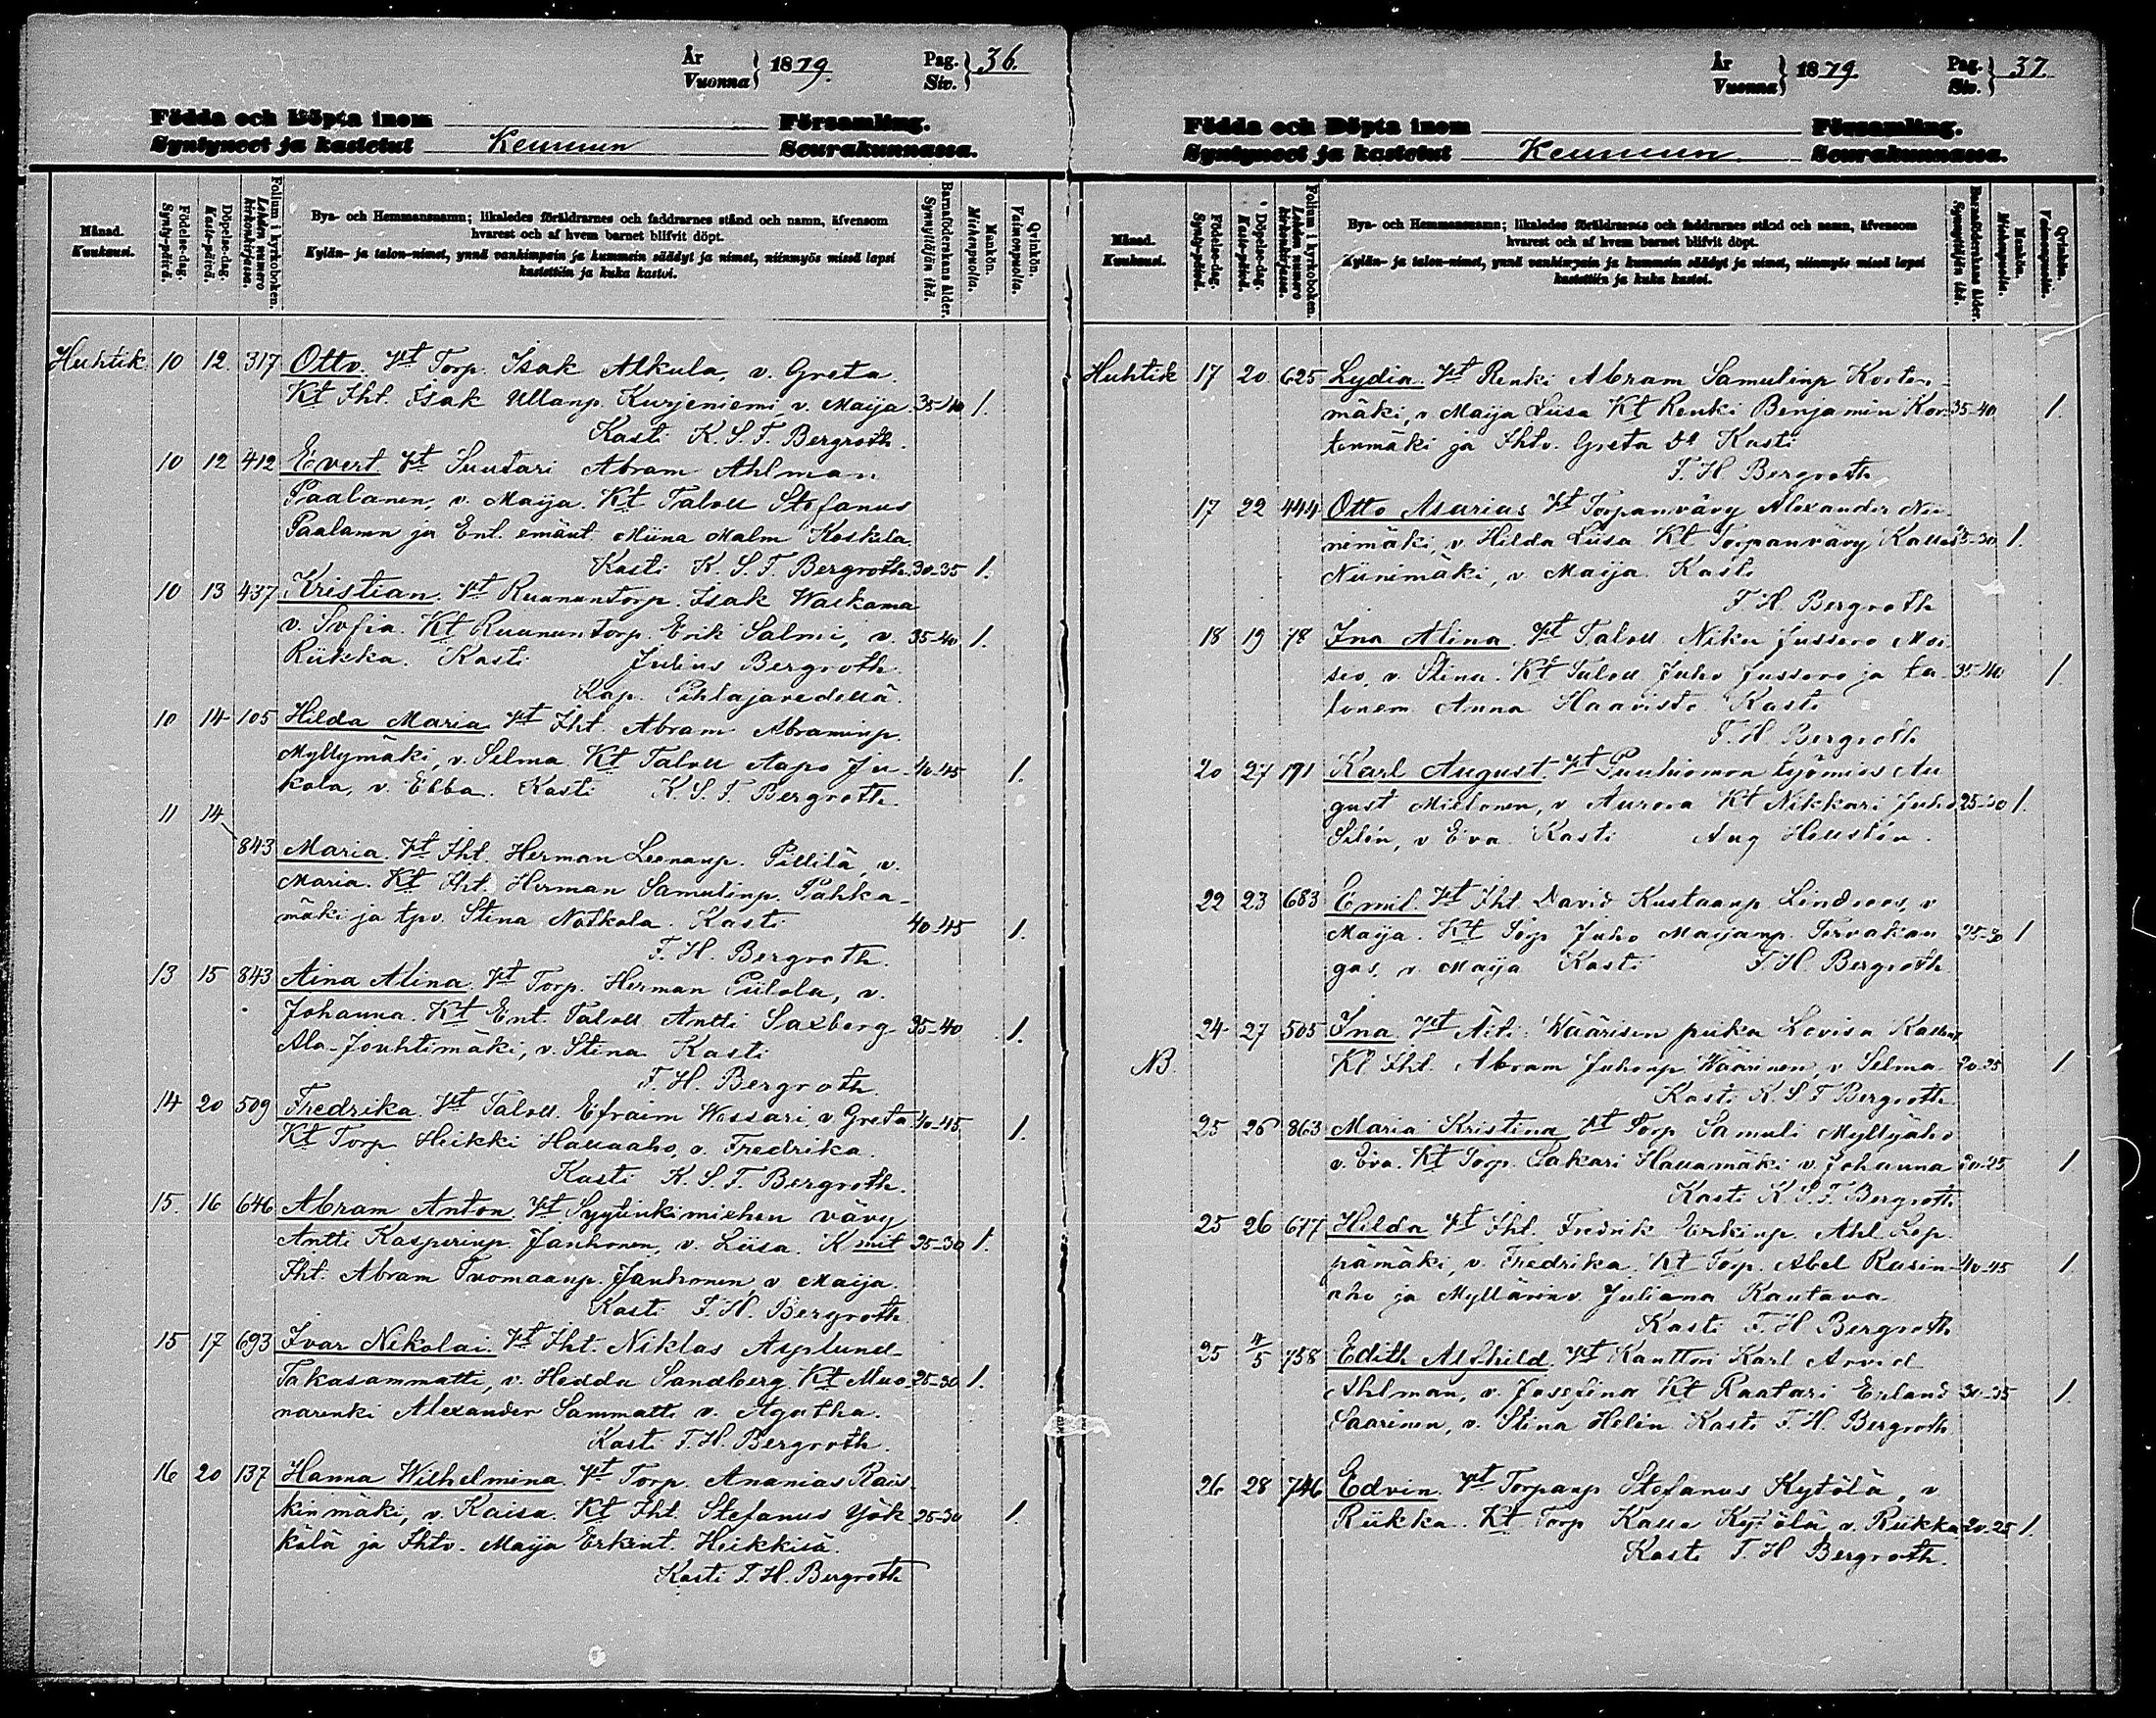 År
Vuonna } 1879.
Pag.
Siv. } 36.
Födda och Döpta inom Församling.
Syntyneet ja kastetut Keuruun Seurakunnassa.
Månad.
Kuukausi.
Födelse-dag.
Synty-päivä.
Döpelse-dag.
Kaste-päivä.
Folium i kyrkoboken.
Lehden numero kirkonkirjassa.
Bya- och Hemmansnamn; likaledes föräldrarnes och faddrarnes stånd och namn, äfvensom
hvarest och af hvem barnet blifvit döpt.
Kylän- ja talon-nimet, ynnä vanhimpain ja kummein säädyt ja nimet, niinmyös missä lapsi
kastettiin ja kuka kastoi.
Barnaföderskans ålder.
Synnyttäjän ikä.
Mankön.
Miehenpuolia.
Qvinkön.
Vaimonpuolia.
Huhtik. 10 12. 317 Otto. Vt Torp. Isak Alkula, v. Greta.
Kt Iht. Isak Ullanp. Kurjeniemi, v. Maija 35-40 1.
Kasti K. S. F. Bergroth.
10 12 412 Evert. Vt Suutari Abram Ahlman
Paalanen, v. Maija. Kt Taloll Stefanus
Paalanen ja Ent. emänt. Miina Malm Koskela
Kasti K. S. F. Bergroth. 30-35 1.
10 13 437 Kristian. Vt Ruununtorp. Isak Waskama
v. Sofia. Kt Ruununtorp. Erik Salmi, v. 35-40 1.
Riikka. Kasti Julius Bergroth.
Kap. Pihlajavedellä.
10 14 105 Hilda Maria. Vt Iht. Abram Abraminp.
Myllymäki, v. Selma. Kt Taloll Aapo Ju- 40-45 1.
kola, v. Ebba. Kasti K. S. F. Bergroth.
11 14
843 Maria. Vt Iht. Herman Leenanp. Pillilä, v.
Maria. Kt Iht. Herman Samulinp. Pahka-
mäki ja tpv. Stina Notkola. Kasti 40-45 1.
F. H. Bergroth.
13 15 843 Aina Alina. Vt Torp. Herman Piilola, v.
Johanna. Kt Ent. Taloll Antti Saxberg 35-40 1.
Ala-Jouhtimäki, v. Stina Kasti
F. H. Bergroth.
14 20 509 Fredrika. Vt Taloll. Efraim Wessari, v. Greta 40-45 1.
Kt Torp Heikki Hallaaho, v. Fredrika.
Kasti K. S. F. Bergroth.
15. 16 646 Abram Anton. Vt Syytinkimiehen vävy
Antti Kasperinp. Janhonen, v. Liisa. Kmit 25-30 1.
Iht. Abram Tuomaanp. Janhonen, v. Maija.
Kasti F. H. Bergroth
15 17 693 Ivar Nikolai. Vt Iht. Niklas Asplund
Takasammatti, v. Hedda Sandberg. Kt Muo- 25-30 1.
narenki Alexander Sammatti v. Agatha.
Kasti F. H. Bergroth.
16 20 137 Hanna Wilhelmina. Vt Torp. Ananias Rais-
kinmäki, v. Kaisa. Kt Iht. Stefanus Yök- 25-30 1.
kälä ja Ihtv. Maija Erkint. Heikkisä.
Kasti F. H. Bergroth
År
Vuonna } 1879.
Pag.
Siv. } 37.
Födda och Döpta inom Församling.
Syntyneet ja kastetut Keuruun Seurakunnassa.
Månad.
Kuukausi.
Födelse-dag.
Synty-päivä.
Döpelse-dag.
Kaste-päivä.
Folium i kyrkoboken.
Lehden numero kirkonkirjassa.
Bya- och Hemmansnamn; likaledes föräldrarnes och faddrarnes stånd och namn, äfvensom
hvarest och af hvem barnet blifvit döpt.
Kylän- ja talon-nimet, ynnä vanhimpain ja kummein säädyt ja nimet, niinmyös missä lapsi
kastettiin ja kuka kastoi.
Barnaföderskans ålder.
Synnyttäjän ikä.
Mankön.
Miehenpuolia.
Qvinkön.
Vaimonpuolia.
Huhtik 17 20 625 Lydia. Vt Renki Abram Samulinp Korten-
mäki, v Maija Liisa Kt Renki Benjamin Kor- 35-40 1.
tenmäki ja Ihtv. Greta Kasti
F. H. Bergroth
17 22 444 Otto Asarias Vt Torpanvävy Alexander Nii-
nimäki, v Hilda Liisa Kt Torpanvävy Kalle 25-30 1.
Niinimäki, v. Maija. Kasti
F. H. Bergroth
18 19 78 Ina Alina. Vt Taloll Niku Jussero Moi-
sio, v. Stina. Kt Taloll Juho Jussero ja ta- 35-40 1.
lonem Anna Haavisto Kasti
F. H. Bergroth
20 27 191 Karl August. Vt Puuhuomon työmies Au-
gust Mieltonen, v Aurora Kt Nikkari Juho 25-30 1.
Silén, v Eva Kasti Aug Hellstén.
22 23 683 Emil. Vt Iht David Kustaanp Lindroos, v
Maija. Kt Torp Juho Maijanp. Tervakan- 25-30 1
gas, v Maija Kasti F. H. Bergroth
24 27 505 Ina Vt Äiti: Wäärisen piika Lovisa Kallent
NB. Kt Iht. Abram Juhonp Wäärinen, v Selma 20-25 1
Kasti K S F Bergroth
25 26 863 Maria Kristina Vt Torp Samuli Myllyaho
v. Eva. Kt Torp. Sakari Hallamäki v. Johanna 20-25 1
Kasti K. S. F. Bergroth
25 26 677 Hilda Vt Iht. Fredrik Erkinp. Ahl. Lep-
pämäki, v. Fredrika. Kt Torp. Abel Rusin- 40-45 1.
aho ja Myllärin v. Juliana Rautava
Kasti F. H Bergroth
25 4/5 758 Edith Alfhild. Vt Kanttori Karl Arvid
Ahlman, v. Josefina Kt Raatari Erland 30-35 1.
Saarinen, v. Stina Helin Kasti F. H. Bergroth
26 28 746 Edvin. Vt Torpanp Stefanus Kytölä, v
Riikka. Kt Torp Kalle Kytölä, v. Riikka 20-25 1.
Kasti F. H Bergroth.